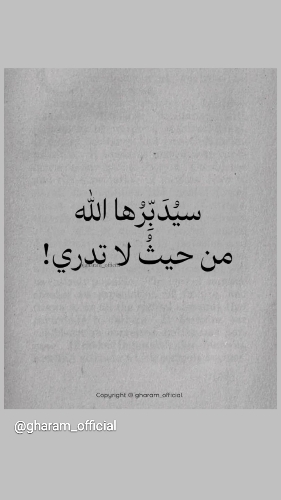 سيُدَبِّرُها الله
من حيثُ لا تدري!
Copyright @ gharam_official
@gharam_official